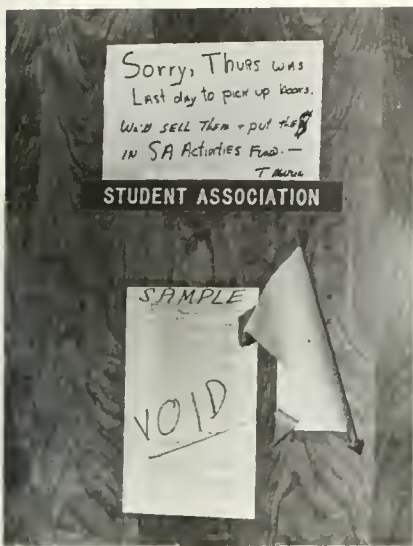 Sorry, Thurs was
Last day to pick up books.
We'd sell them + put the $
in SA Activities Fund. —
T
STUDENT ASSOCIATION
SAMPLE
VOID